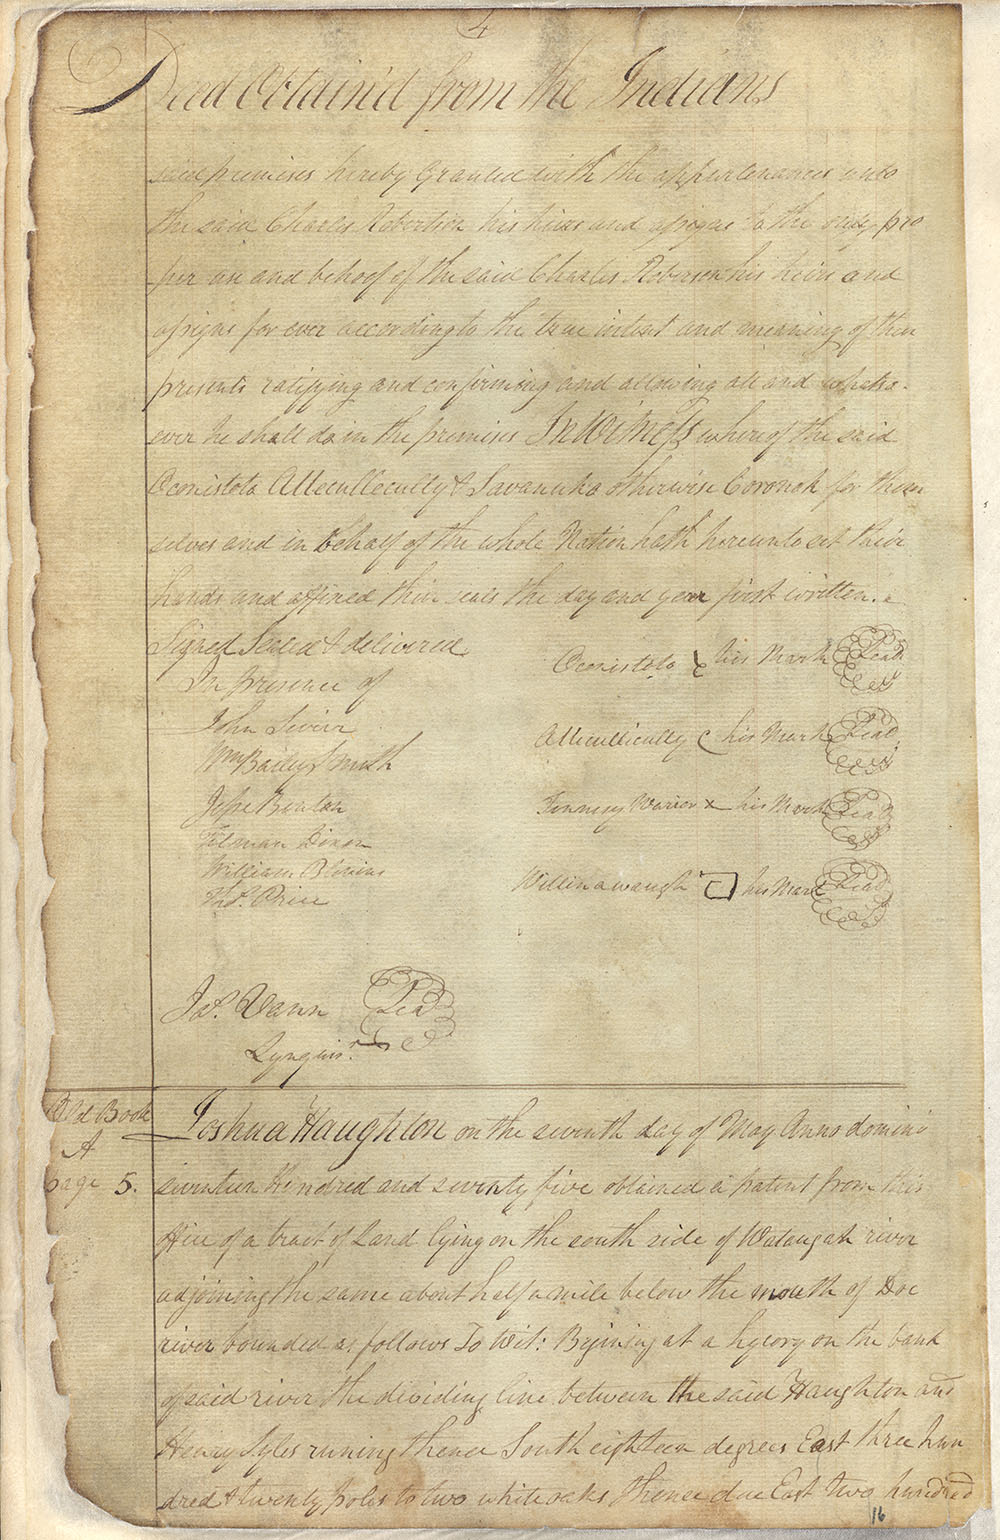 4
Deed Obtain'd from the Indians
said premises hereby Granted with the appurtenances unto
the said Charles Robertson his heirs and assigns to the only pro
per use and behoof of the said Charles Roberson his heirs and
assigns for ever according to the true intent and meaning of these
presents ratifying and confirming and allowing all and whatso-
ever he shall do in the premises In Witness whereof the said
Oconistoto Attecullecully & Savanuka otherwise Coronoh for them
selves and in behalf of the whole Nation hath hereunto set their
hands and affixed their seals the day and year first written.
Signed Sealed & delivered
In presence of
Oconistoto his Mark Seal
John Sevier
Wm Baily Smith
Attecullecully his Mark Seal
Jesse Benton
Tennesy Warior x his Mark Seal
Tilman Dixon
William Blevins
Thos. Price
Willinawaugh his Mark Seal
Jas. Vann Seal
Lynguisr.
Old Book
A
page 5.
Joshua Haughton on the seventh day of May Anno domini
seventeen Hundred and seventy five obtained a patent from this
office of a tract of Land lying on the south side of Wataugah river
adjoining the same about half a mile below the mouth of Doe
river bounded as follows To Wit: Begining at a hycory on the bank
of said river the dividing line between the said Haughton and
Henry Lyles runing thence South eighteen degrees East three hun
dred & twenty poles to two white oaks thence due East two hundred
16